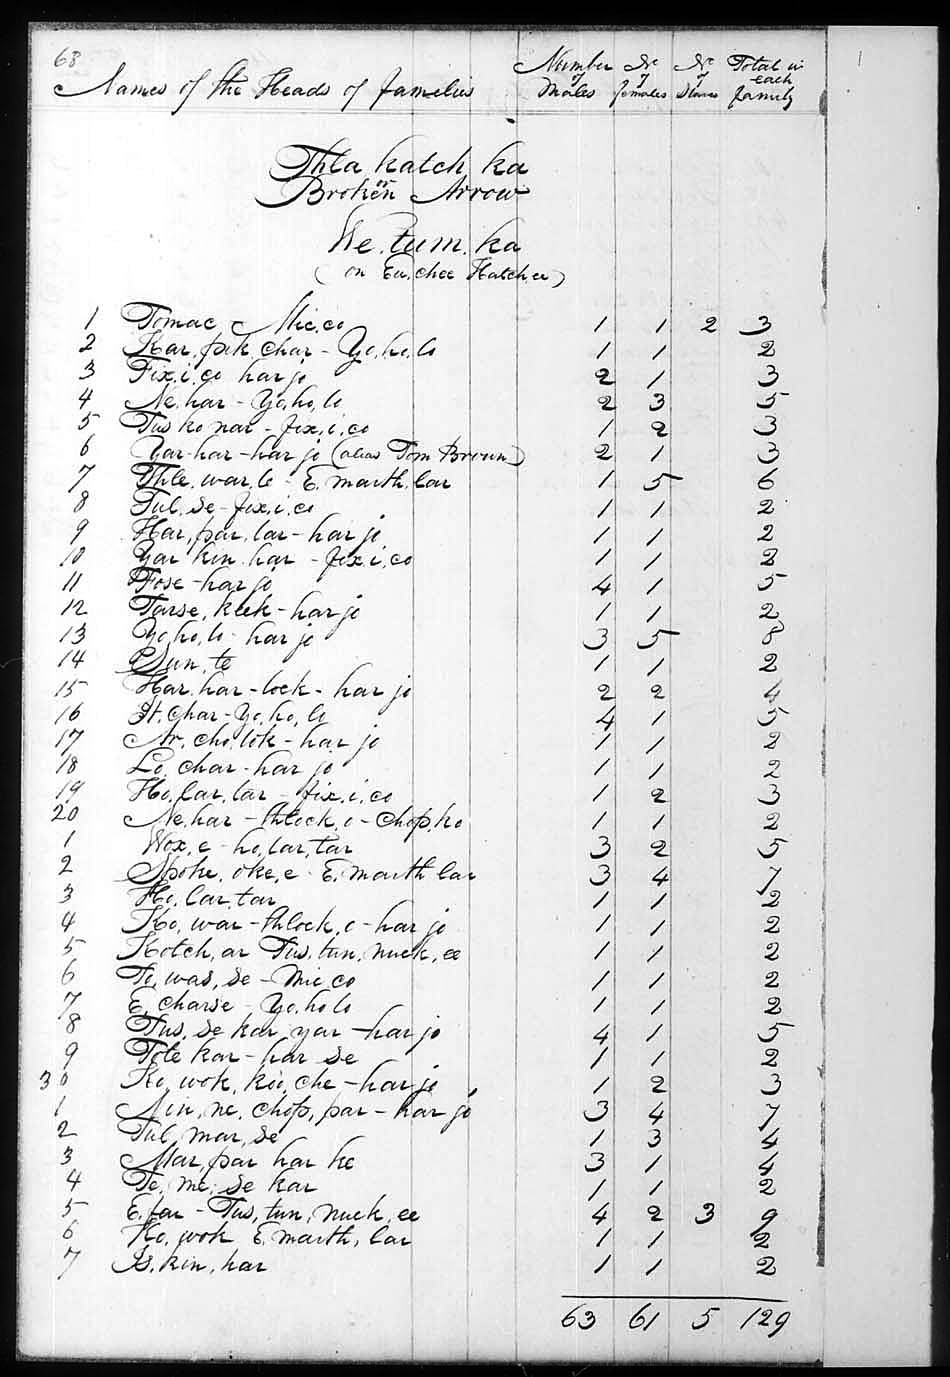 68
Names of the Heads of families Number of Males No of females No of Slaves Total in each family
Thla katch ka
or
Broken Arrow
We.tum.ka
(on Eu,chee Hatch,ee)
1 Tomac - Mic,co 1 1 2 3
2 Kar,pik,char - Yo,ho,lo 1 1 2
3 Fix,i,co harjo 2 1 3
4 Ne,har - Yo,ho,lo 2 3 5
5 Tus ko nar - fix,i,co 1 2 3
6 Yar-har-harjo (alias Tom Brown) 2 1 3
7 Thle,war,le - E,marth,lar 1 5 6
8 Tul,se - fix,i,co 1 1 2
9 Har,par,lar - harjo 1 1 2
10 Yar kin har - fix,i,co 1 1 2
11 Fose - harjo 4 1 5
12 Tarse,keek - harjo 1 1 2
13 Yo,ho,lo - harjo 3 5 8
14 Sun,te 1 1 2
15 Har,har - lock - harjo 2 2 4
16 It,char - Yo,ho,lo 4 1 5
17 Ar,cho,lok - harjo 1 1 2
18 Lo,char - harjo 1 1 2
19 Ho,lar,tar - fix,i,co 1 2 3
20 Ne,har - thlock,o - chop,ko 1 1 2
1 Wox,e - ho,lar,tar 3 2 5
2 Spoke,oke,e - E,marth lar 3 4 7
3 Ho,lar,tar 1 1 2
4 Ko,war - thlock,o - harjo 1 1 2
5 Kotch,ar Tus,tun,nuck,ee 1 1 2
6 To,was,se - Mic,co 1 1 2
7 E,charse - Yo,ho,lo 1 1 2
8 Tus,se kar,yar - harjo 4 1 5
9 Tote kar - har se 1 1 2
30 Ko,wok,koo,che - harjo 1 2 3
1 Nin,ne,chop,par - harjo 3 4 7
2 Tul,mar,se 1 3 4
3 Mar,par har ke 3 1 4
4 Te,me,se kar 1 1 2
5 E,far - Tus,tun,nuck,ee 4 2 3 9
6 Ho,wok E,marth,lar 1 1 2
7 Is,kin,har 1 1 2
63 61 5 129